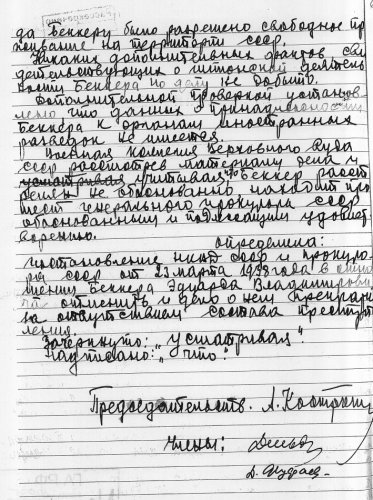 Рассекречено
да Беккеру было разрешено свободное про
живание на территории ссср.
Никаких дополнительных фактов сви
детельствующих о шпионской деятель
ности Беккера по делу не добыто.
Дополнительной проверкой установ
лено что данных принадлежности
Беккера к органам иностранных
разведок не имеется.
Военная коллегия Верховного Суда
ссср рассмотрев материалы дела и
усматривая учитывая, что Беккер расст
релян не обоснованно, находит про
тест генерального прокурора ссср
обоснованным и подлежащим удовлет
ворению.
определила:
постановление нквд ссср и прокуро
ра ссср от 23 марта 1938 года в отно
шении Беккера Эдуарда Владимирови
ча отменить и дело о нем прекратить
за отсутствием состава преступ
ления.
Зачеркнуто: "усматривая"
Надписано: "что".
Председательств.
Члены: